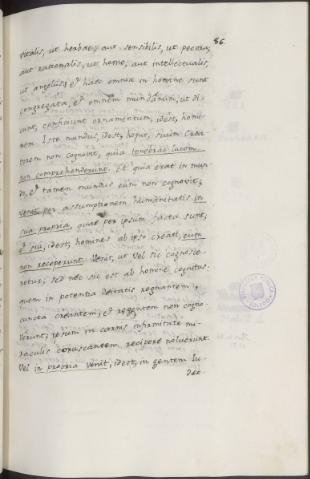 86.
vitalis, ut herbae, aut sensibilis, ut pecora,
aut rationalis, ut homo, aut intellectualis,
ut angelus; et haec omnia in homine sunt
congregata, et omnem mundanum, ut di-
cunt, conficiunt ornamentum, idest, homi-
nem. Iste mundus, idest, homo, suum Crea
torem non cognovit, quia tenebrae lucem
non comprehenderunt. Et quia erat in mun-
do, et tamen mundus eum non cognovit,
venit per assumptionem humanitatis in
sua propria, quae per ipsum facta sunt,
et sui, idest, homines ab ipso creati, eum
non receperunt. Venit, ut vel sic cognosce-
retur; sed nec sic est ab homine cognitus.
quem in potentia deitatis regnantem,
cuncta creantem, et regentem non cogno-
verunt, ipsum in carnis infirmitate mi-
raculis coruscantem recipere noluerunt.
Vel in propria venit, idest, in gentem Iu-
dae